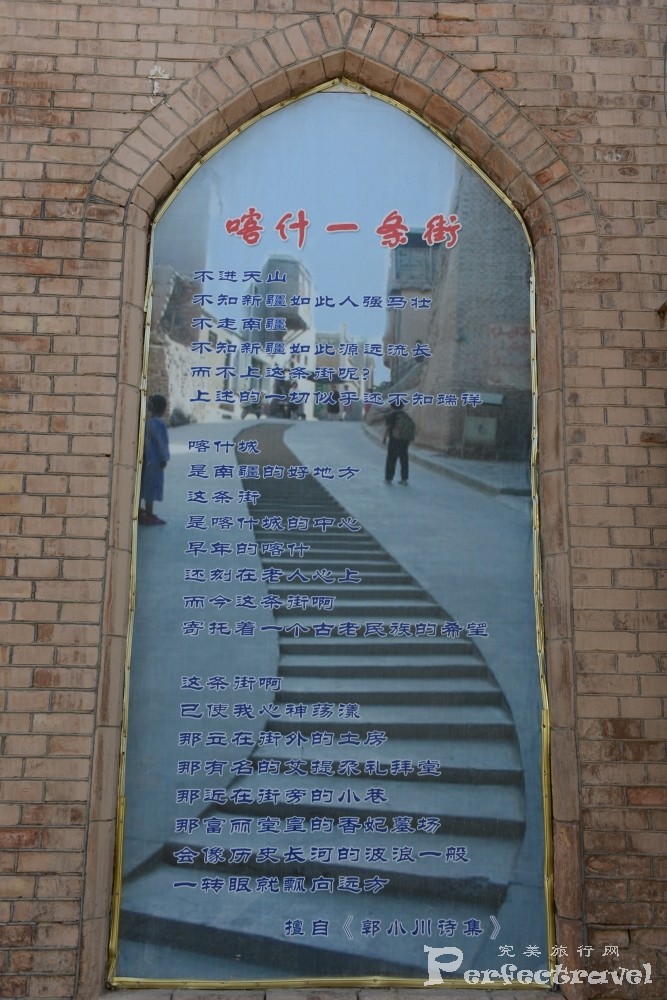 喀什一条街
不进天山
不知新疆如此人强马壮
不走南疆
不知新疆如此源远流长
而不上这条街呢?
上述的一切似乎还不知瑞详
喀什城
是南疆的好地方
这条街
是喀什城的中心
早年的喀什
还刻在老人心上
而今这条街啊
寄托着一个古老民族的希望
这条街啊
已使我心神荡漾
那立在街外的土房
那有名的艾提尕礼拜堂
那近在街旁的小巷
那富丽堂皇的香妃墓场
会像历史长河的波浪一般
一转眼就飘向远方
擅自《郭小川诗集》
完美旅行网
Perfectravel